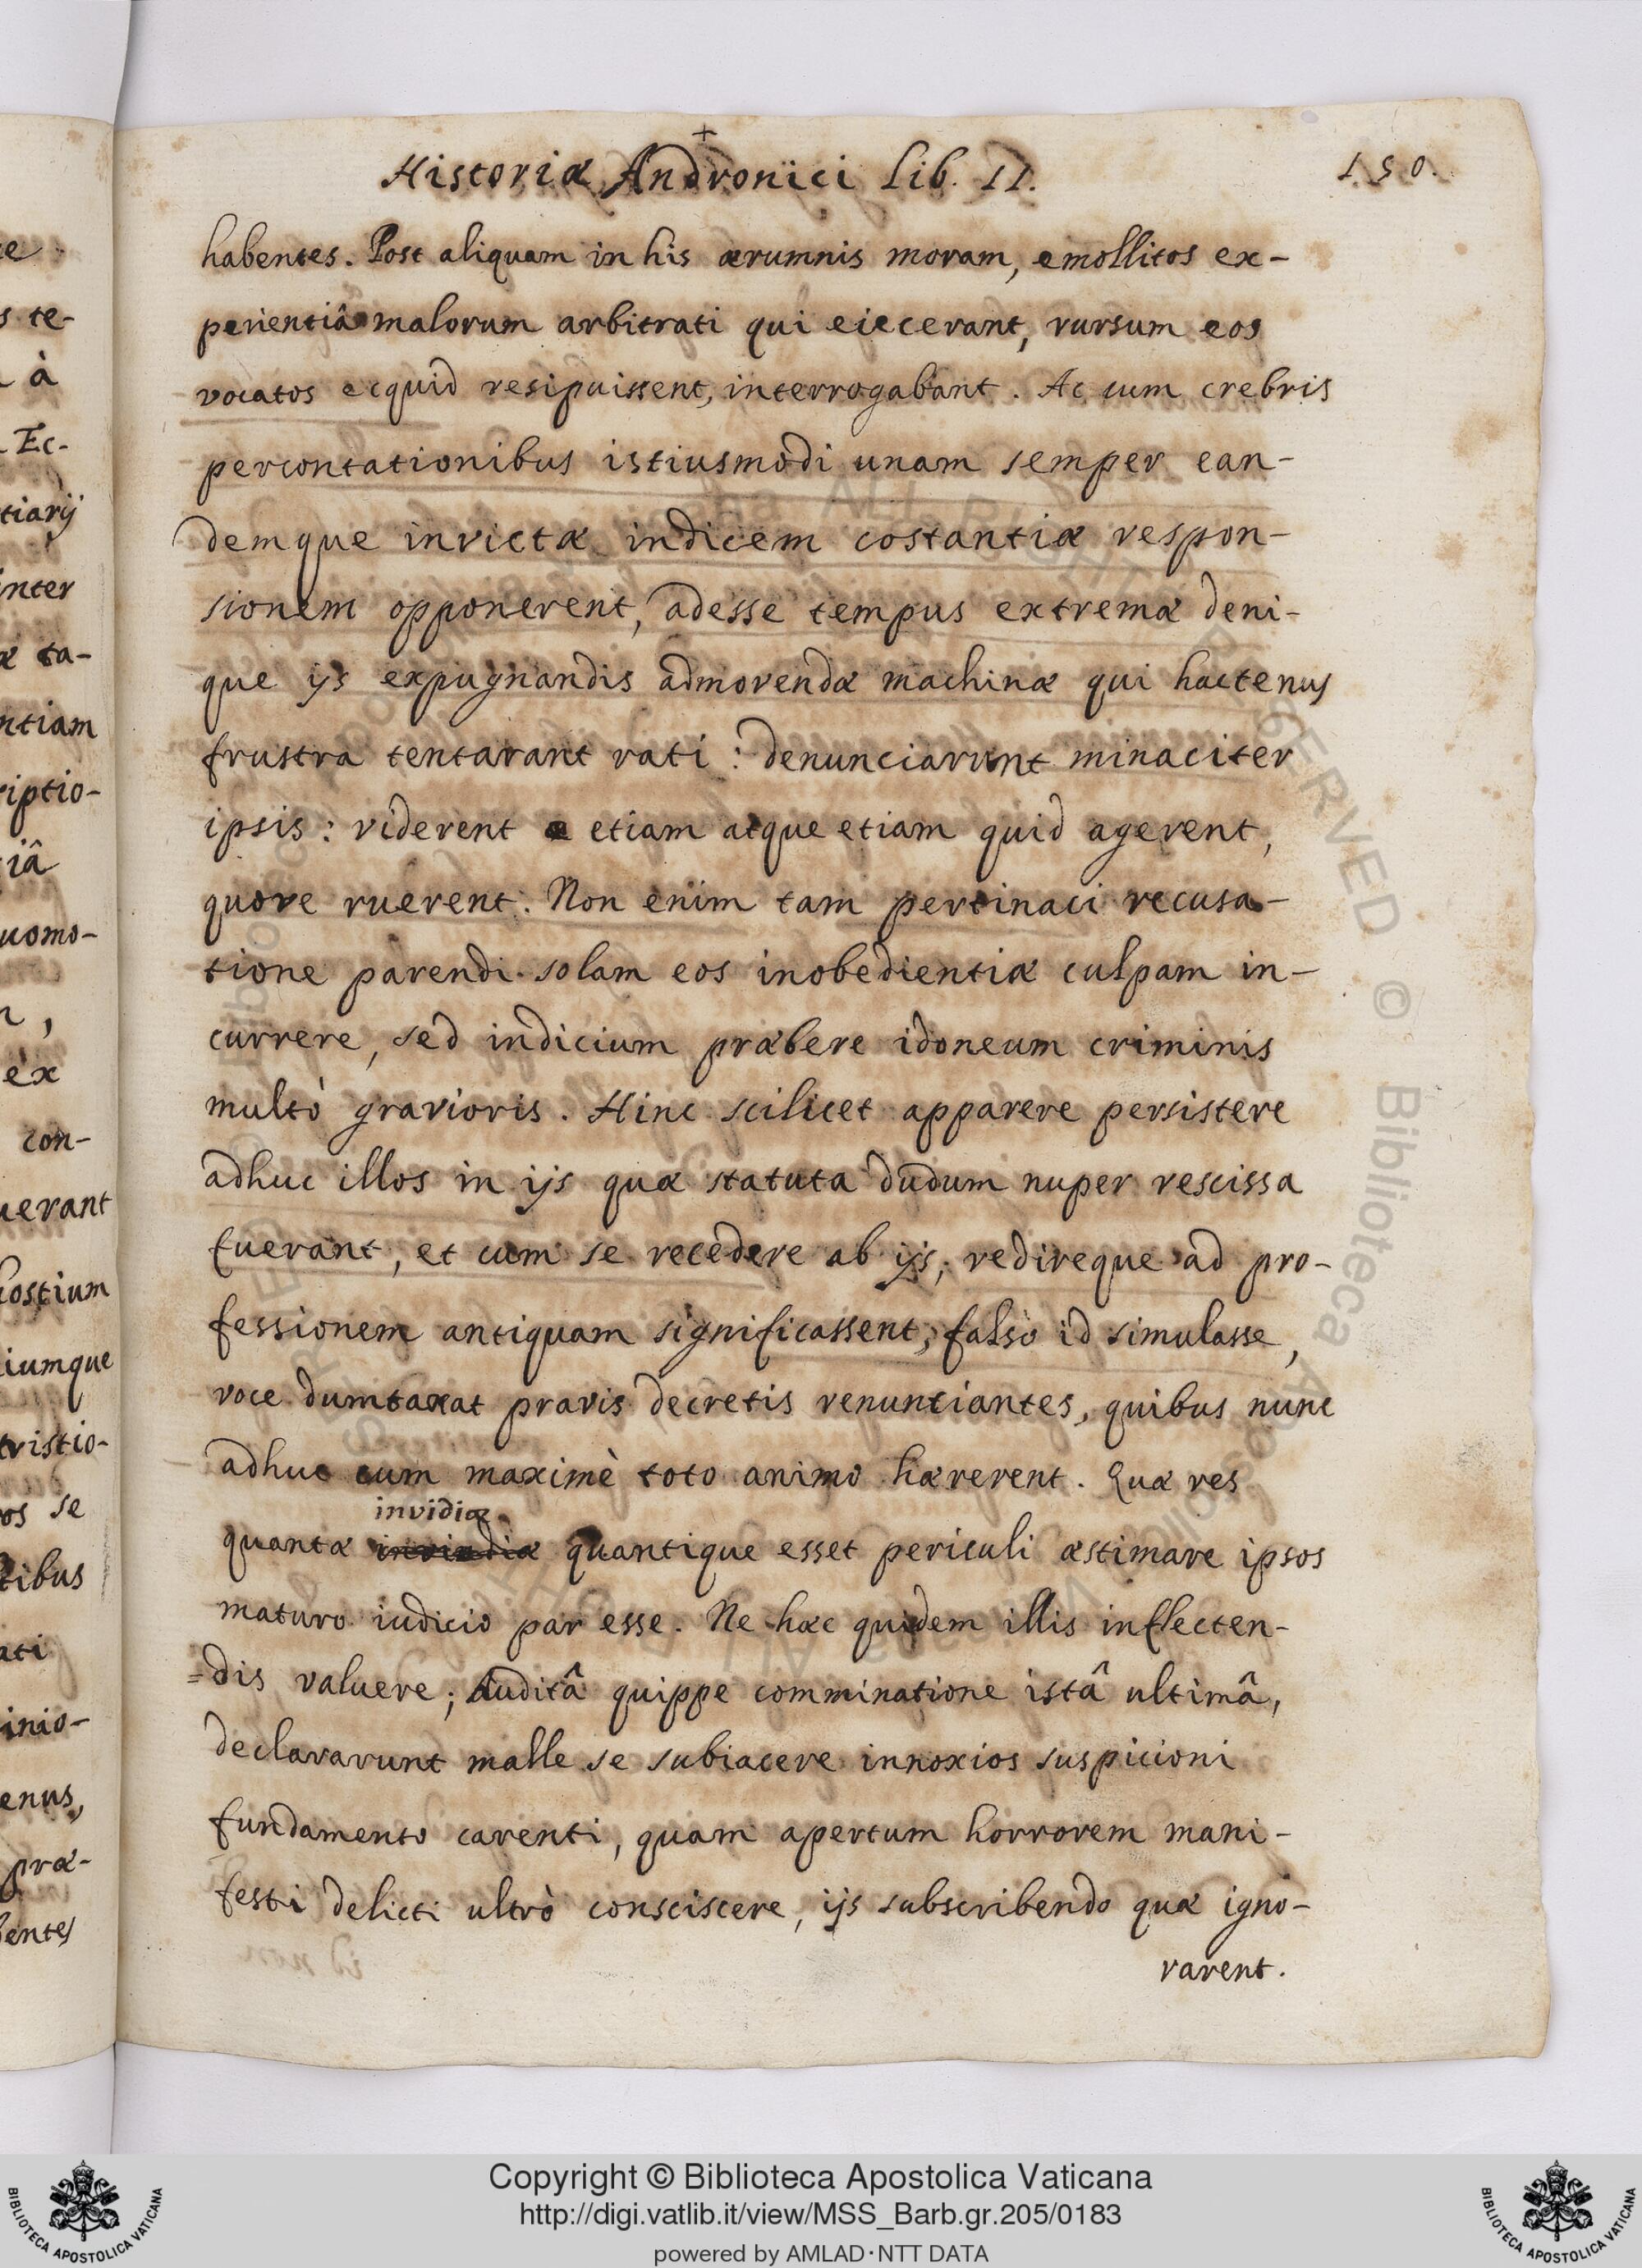 Historiæ Andronici Lib. II.
150.
habentes. Post aliquam in his ærumnis moram, emollitos ex-
perientiâ malorum arbitrati qui eiecerant, rursum eos
vocatos ecquid resipuissent, interrogabant. Ac cum crebris
percontationibus istiusmodi unam semper ean-
demque invictæ indicem costantiæ respon-
sionem opponerent, adesse tempus extremæ deni-
que ijs expugnandis admovendæ machinæ qui hactenus
frustra tentarant rati: denunciarunt minaciter
ipsis: viderent etiam atque etiam quid agerent,
quove ruerent. Non enim tam pertinaci recusa-
tione parendi solam eos inobedientiæ culpam in-
currere, sed indicium præbere idoneum criminis
multò gravioris. Hinc scilicet apparere persistere
adhuc illos in ijs quæ statuta dudum nuper rescissa
fuerant, et cum se recedere ab ijs, redireque ad pro-
fessionem antiquam significassent, falsò id simulasse,
voce dumtaxat pravis decretis renuntiantes, quibus nunc
adhuc cum maximè toto animo hærerent. Quæ res
invidiæ
quantæ quantique esset periculi æstimare ipsos
maturo iudicio par esse. Ne hæc quidem illis inflecten-
=dis valuere; Auditâ quippe comminatione istâ ultimâ,
declararunt malle se subiacere innoxios suspicioni
fundamento carenti, quam apertum horrorem mani-
festi delicti ultrò consciscere, ijs subscribendo quæ igno-
rarent.
e
s te-
à
Ec-
tiarij
inter
æ ta-
ntiam
riptio-
iâ
uomo-
,
èx
con-
uerant
hostium
iumque
tristio-
os se
tibus
ati
inio-
enus,
præ-
bentes
ALL RIGHTS RESERVED © Biblioteca Apostolica Vaticana
Copyright © Biblioteca Apostolica Vaticana
http://digi.vatlib.it/view/MSS_Barb.gr.205/0183
powered by AMLAD·NTT DATA
BIBLIOTECA APOSTOLICA VATICANA
BIBLIOTECA APOSTOLICA VATICANA